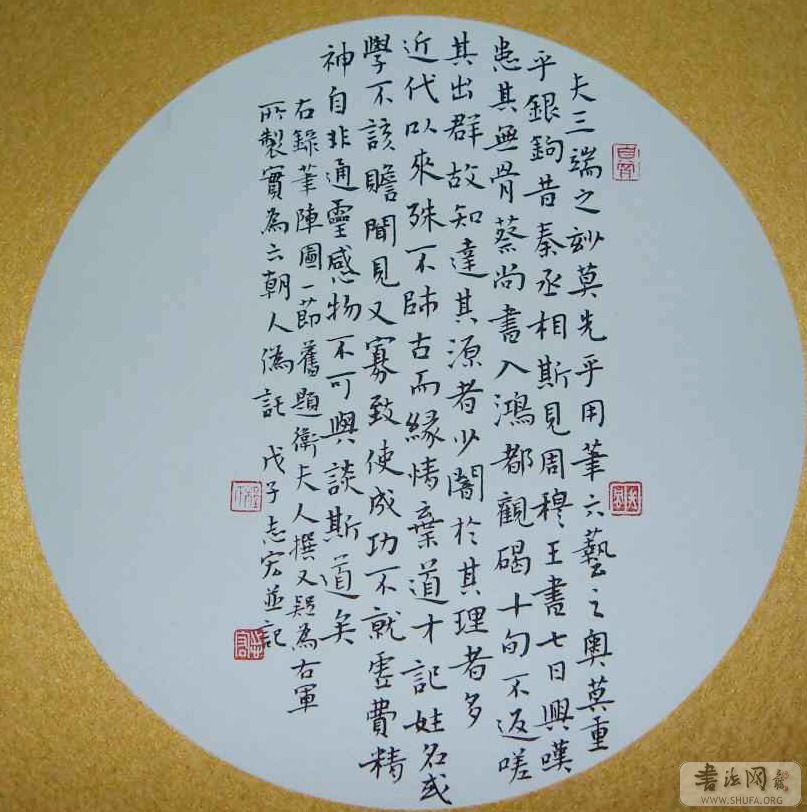 夫三端之妙莫先乎用筆六藝之奧莫重
乎銀鉤昔秦丞相斯見周穆王書七日興嘆
患其無骨蔡尚書入鴻都觀碣十旬不返嗟
其出群故知達其源者少闇於其理者多
近代以來殊不師古而緣情棄道才記姓名或
學不該贍聞見又寡致使成功不就虛費精
神自非通靈感物不可與談斯道矣
右錄筆陣圖一節舊題衛夫人撰又疑為右軍
所製實為六朝人偽託 戊子志宏並記
书法网
WWW.SHUFA.ORG